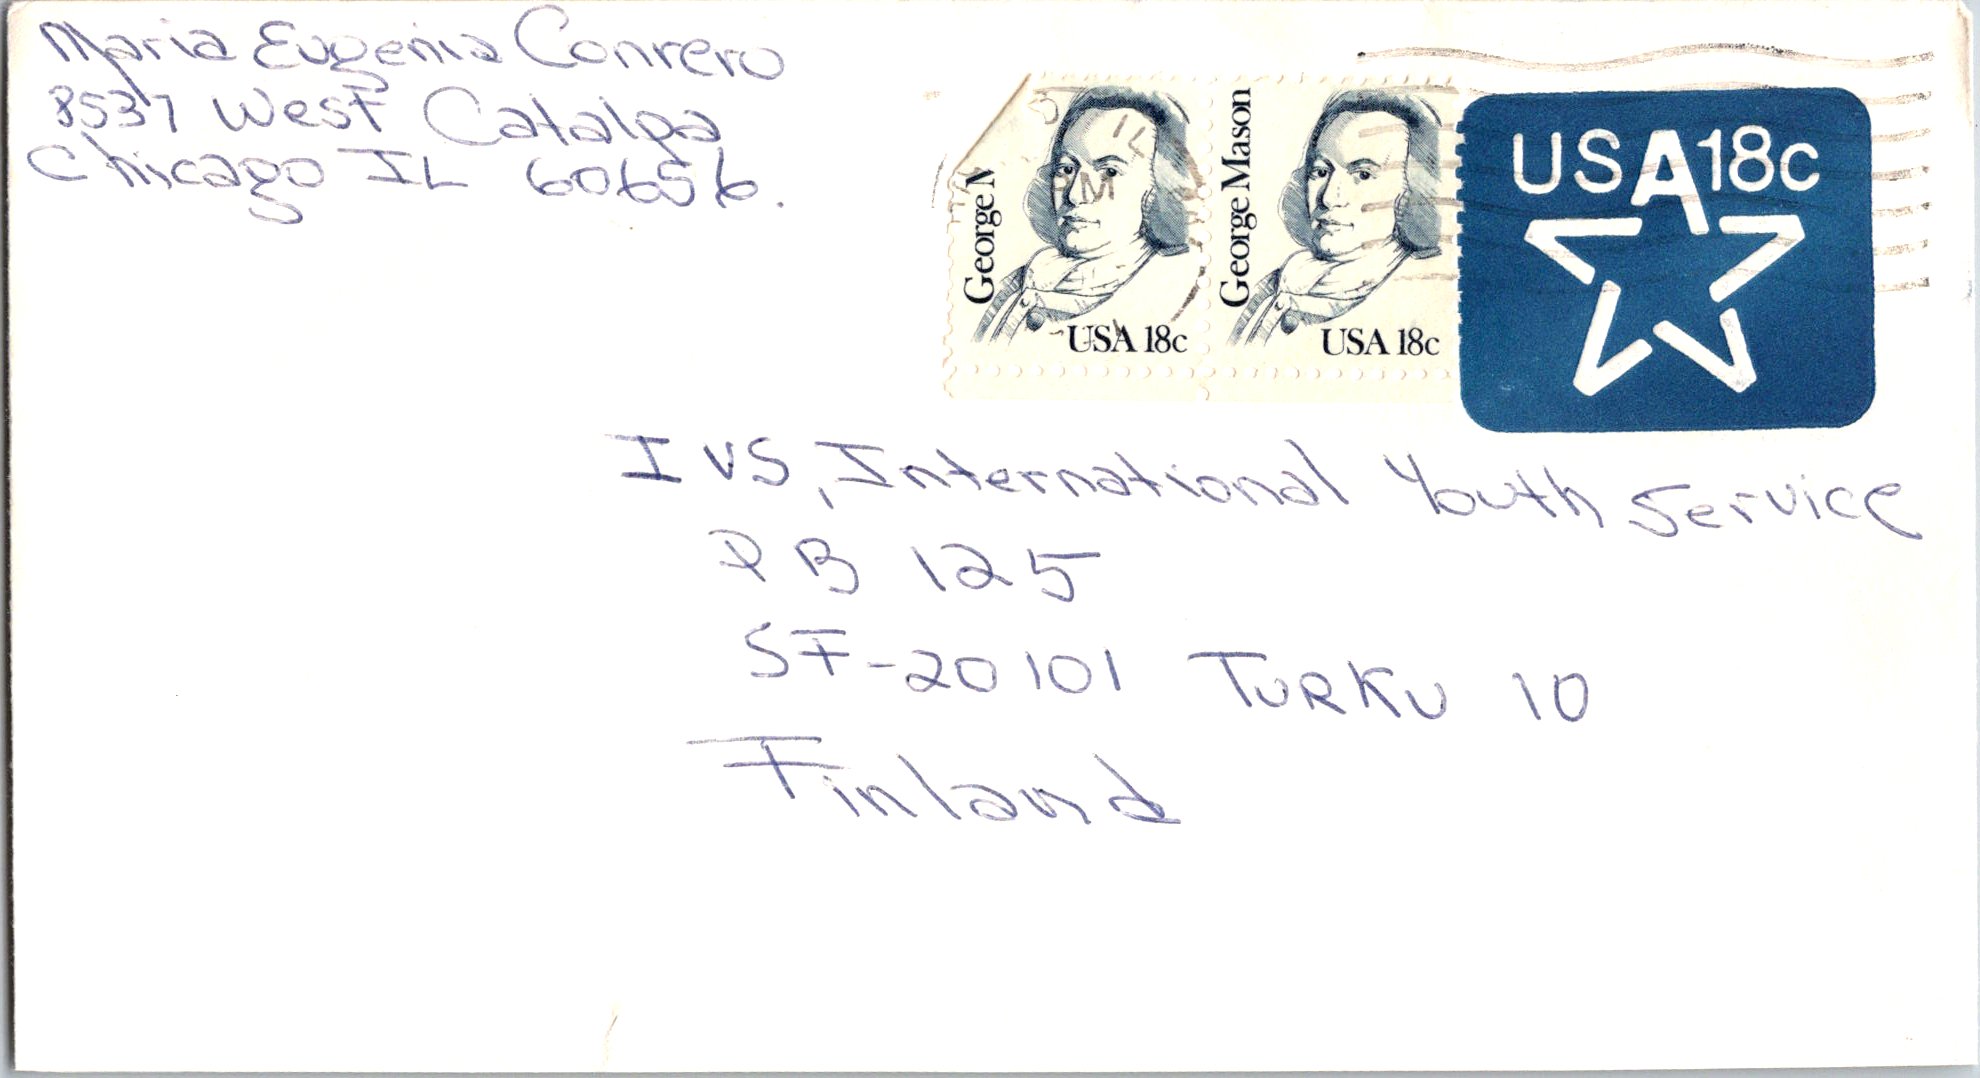 Maria Eugenia Conrero
8537 West Catalpa
Chicago IL 60656.
IL
PM
George M
USA 18c
George Mason
USA 18c
USA 18c
IVS, International Youth Service
PB 125
SF-20101 TURKU 10
Finland